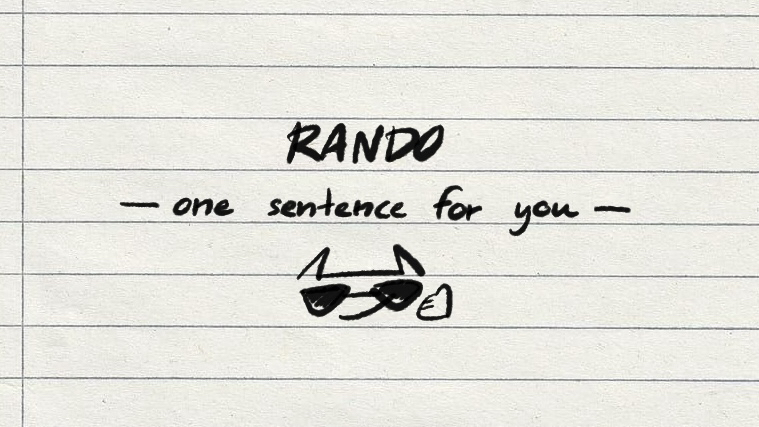 RANDO
— one sentence for you —